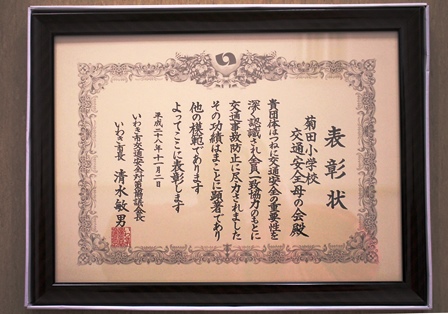 表彰状
菊田小学校
交通安全母の会殿
貴団体はつねに交通安全の重要性を
深く認識され会員一致協力のもとに
交通事故防止に尽力されました
その功績はまことに顕著であり
他の模範であります
よってここに表彰します
平成二十八年十一月二日
いわき市交通安全対策協議会長
いわき市長 清水敏男